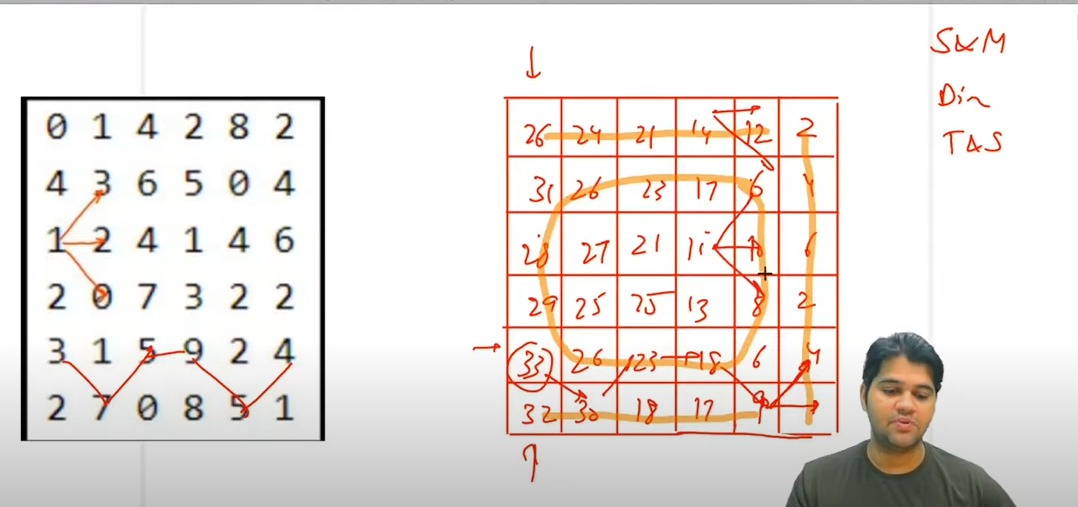 0 1 4 2 8 2
4 3 6 5 0 4
1 2 4 1 4 6
2 0 7 3 2 2
3 1 5 9 2 4
2 7 0 8 5 1
26 24 21 14 12 2
31 26 23 17 6 4
28 27 21 11 10 6
29 25 25 13 8 2
33 26 23 18 6 4
32 30 18 17 9
S&M
Dir
T&S